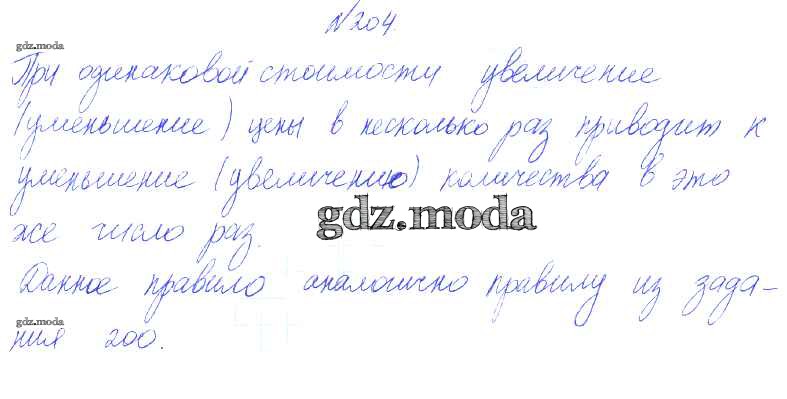 №204.
gdz.moda
При одинаковой стоимости увеличение
(уменьшение) цены в несколько раз приводит к
уменьшение (увеличению) количества в это
же число раз.
gdz.moda
Данное правило аналогично правилу из зада-
gdz.moda
ния 200.